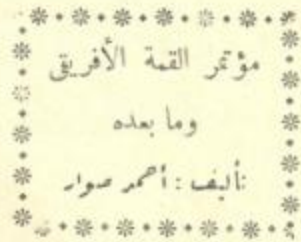 مؤتمر القمة الأفريقى
وما بعده
تأليف : أحمد صوار